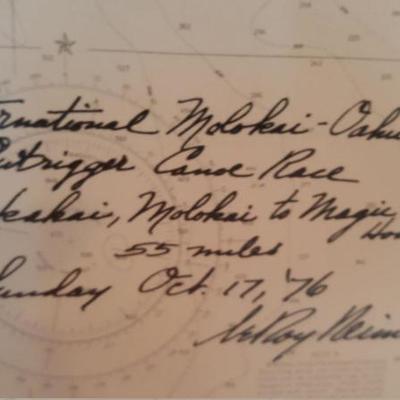 ernational Molokai-Oahu
utrigger Canoe Race
kakai, Molokai to Magic
Hon
55 miles
unday Oct. 17, '76
LeRoy Neim